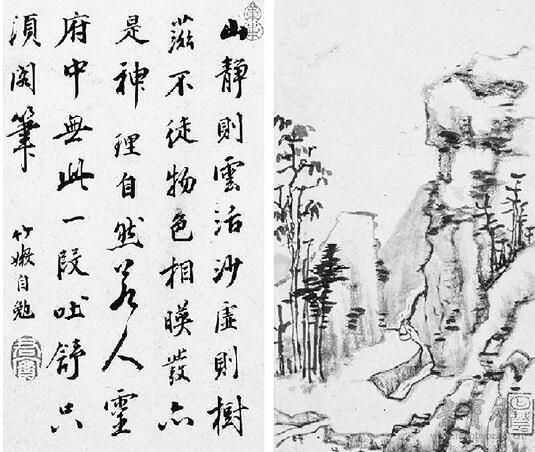 山靜則雲活沙虛則樹
不徒物色相暎發亦
是神理自然若人靈
府中無此一段吐舒只
須閣筆
竹嬾自勉